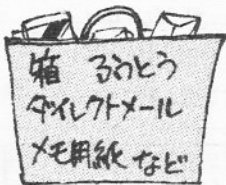 箱 ふうとう
ダイレクトメール
メモ用紙 など